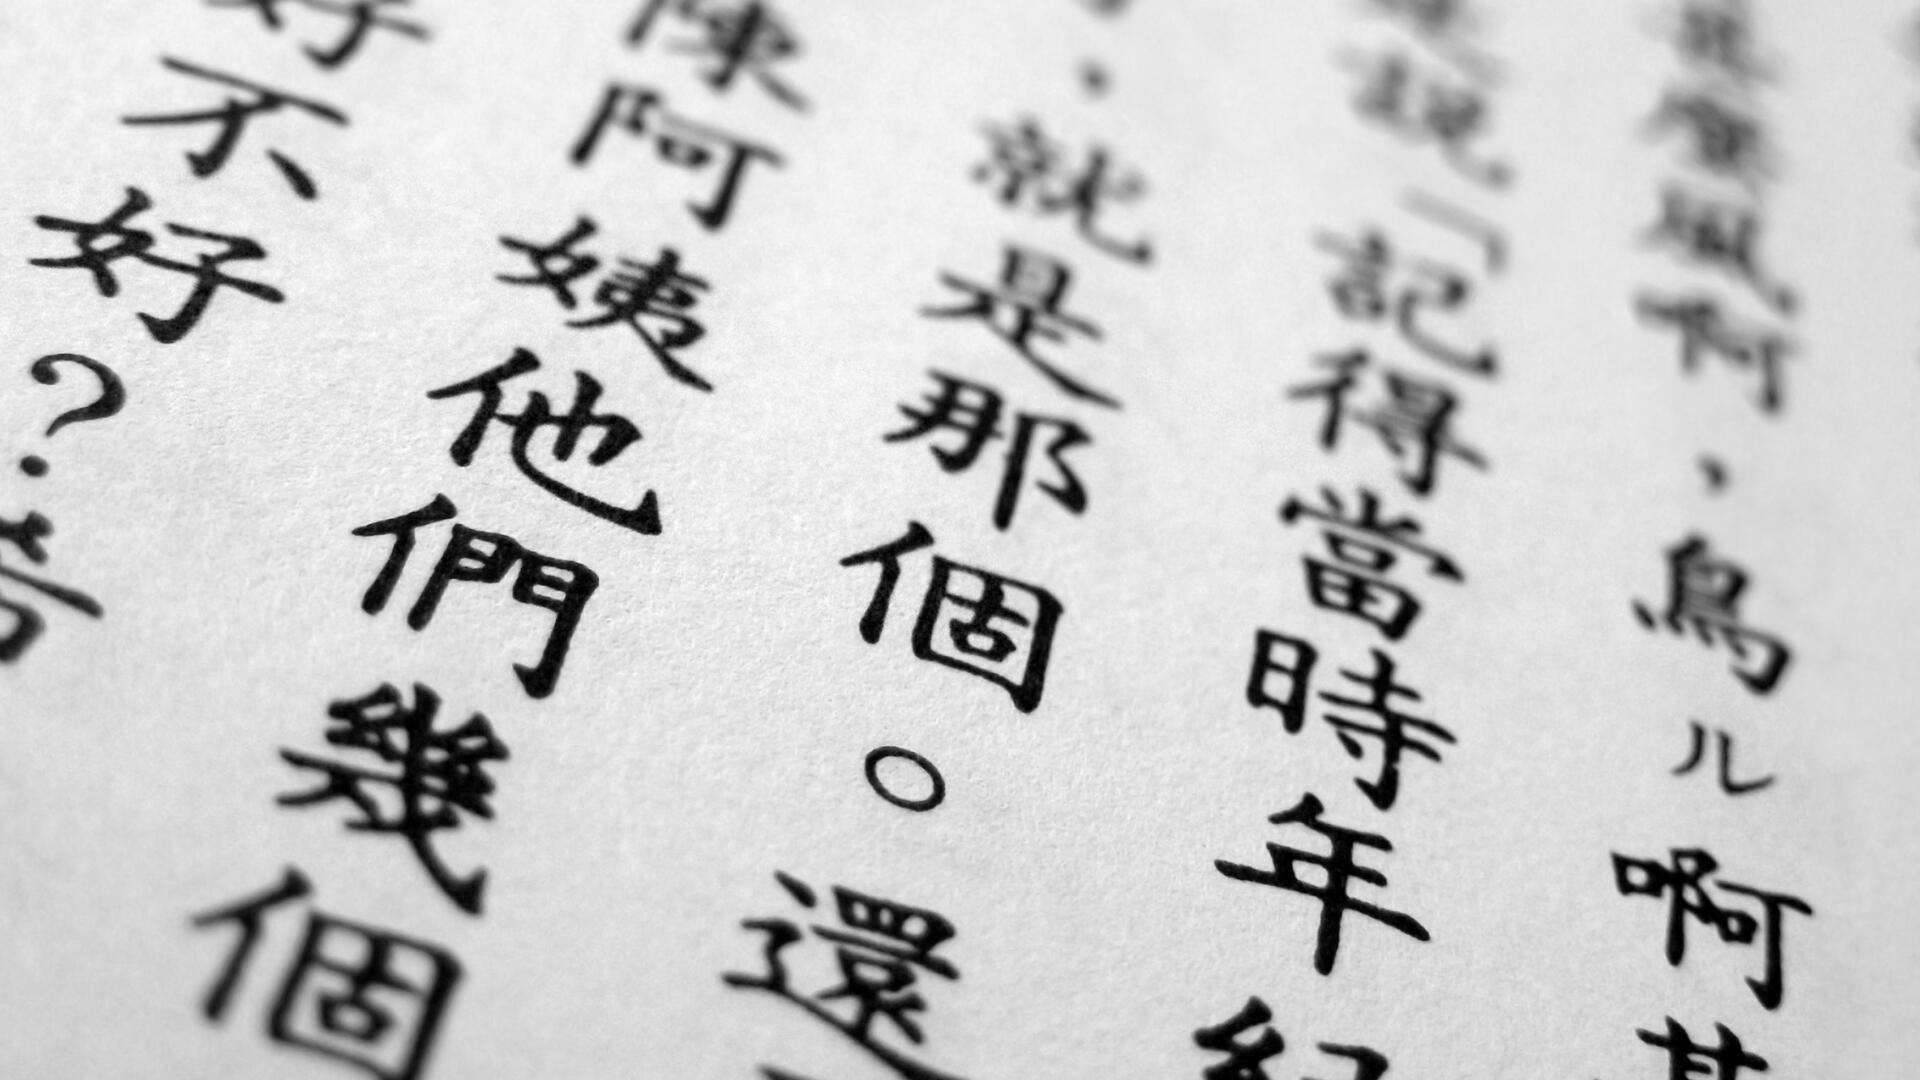 風啊、鳥ル啊甚
說「記得當時年紀
、就是那個。還
陳阿姨他們幾個
好不好?